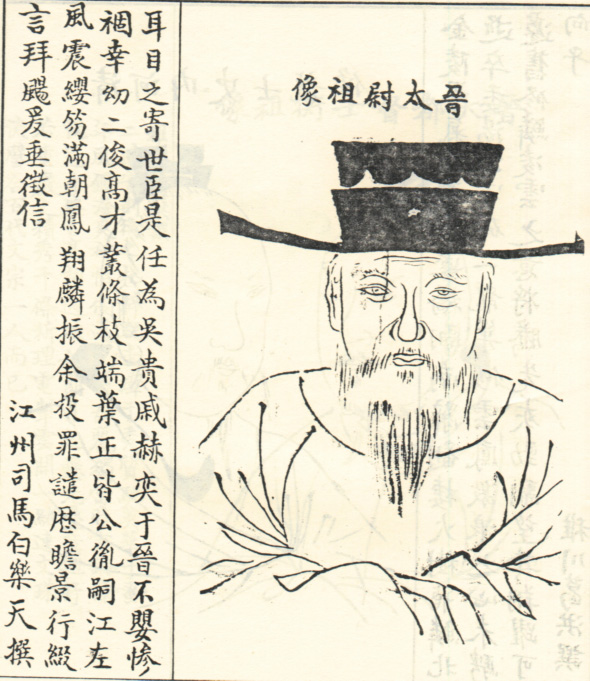 晉太尉祖像
耳目之寄世臣是任為吳貴戚赫奕于晉不嬰慘
禍幸幼二俊高才叢條枝端葉正皆公胤嗣江左
風震纓笏滿朝鳳翔麟振余投罪譴歷瞻景行綴
言拜颺爰垂徵信
江州司馬白樂天撰